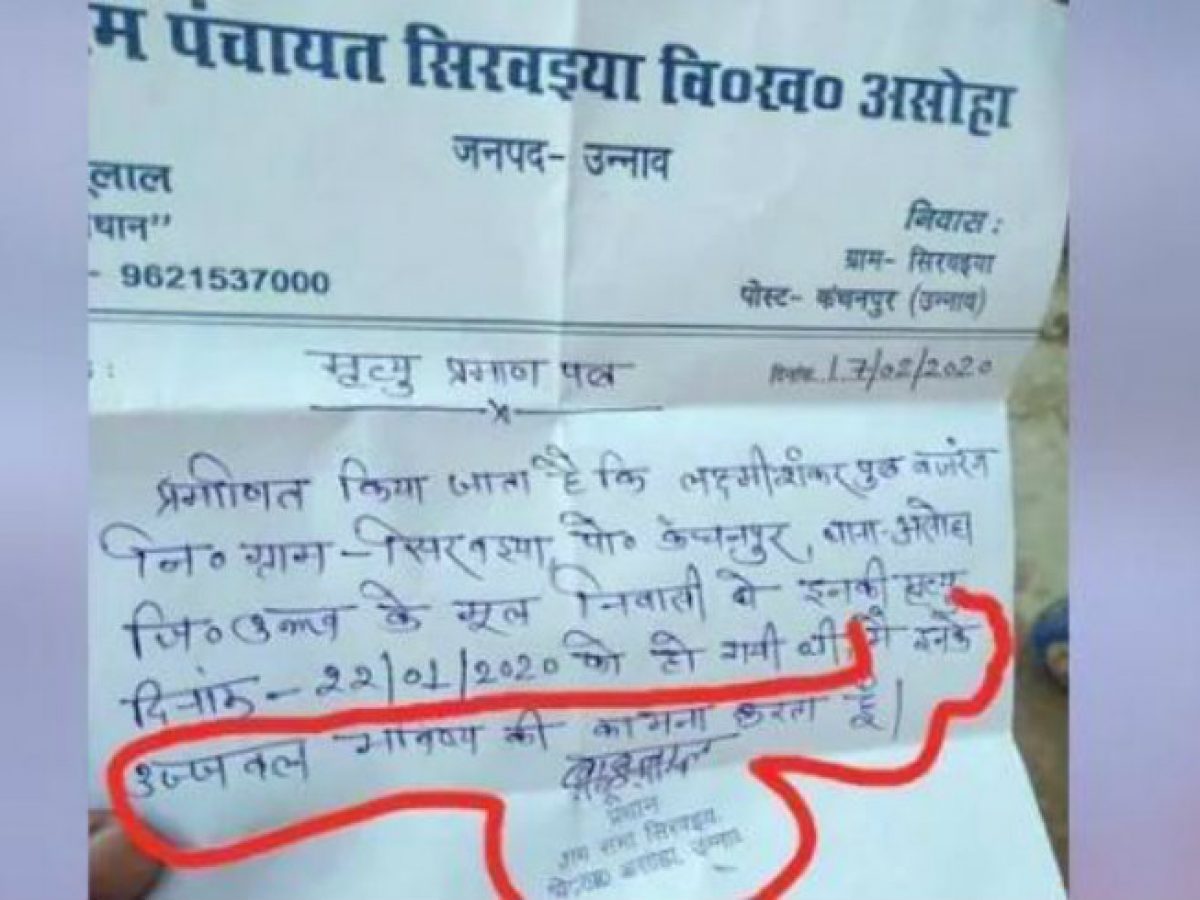 म पंचायत सिरवइया वि०ख० असोहा
जनपद- उन्नाव
ूलाल
धान"
- 9621537000
निवास :
ग्राम- सिरवइया
पोस्ट- कंचनपुर (उन्नाव)
मृत्यु प्रमाण पत्र
दिनांक..17/02/2020
प्रमाणित किया जाता है कि लक्ष्मीशंकर पुत्र बजरंग
नि० ग्राम - सिरवइया, पो० कंचनपुर, थाना-असोहा
जि० उन्नाव के मूल निवासी थे इनकी मृत्यु
दिनांक - 22/01/2020 को हो गयी थी मै इनके
उज्जवल भविष्य की कामना करता हूँ।
प्रधान
ग्राम सभा सिरवइया
वि०ख० असोहा, उन्नाव